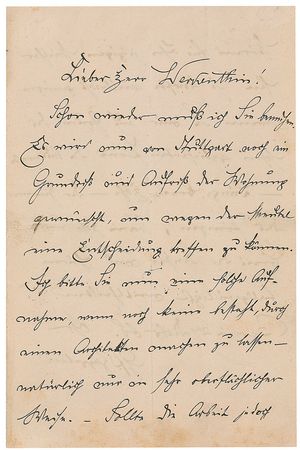 Lieber Herr Werenthin!
Schon wieder muß ich Sie bemühen.
Es wird nun von Stuttgart noch ein
Grundriß und Aufriß der Wohnung
gewünscht, um wegen der
eine Entscheidung treffen zu können.
Ich bitte Sie nun, eine solche Auf-
nahme, wenn noch keine besteht, durch
einen Architekten machen zu lassen –
natürlich nur in sehr oberflächlicher
Weise. – Sollte die Arbeit jedoch